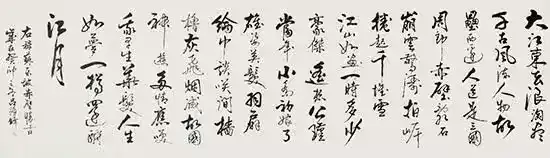 大江東去浪淘盡
千古風流人物故
壘西邊人道是三國
周郎赤壁亂石
崩雲驚濤拍岸
捲起千堆雪
江山如畫一時多少
豪傑遙想公瑾
當年小喬初嫁了
雄姿英發羽扇
綸巾談笑間檣
櫓灰飛烟滅故國
神遊多情應笑
我早生華髮人生
如夢一樽還酹
江月